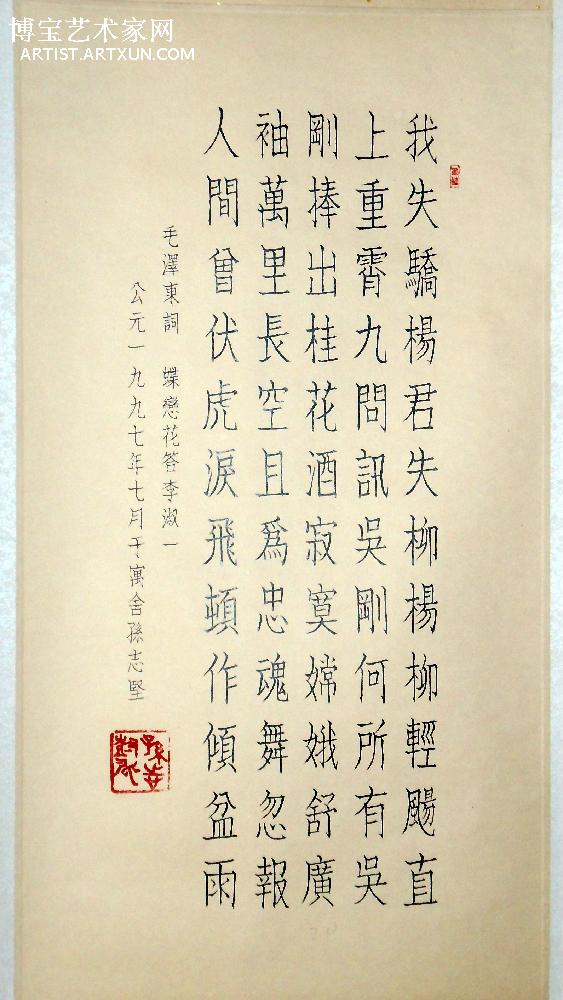 博宝艺术家网
ARTIST.ARTXUN.COM
我失驕楊君失柳楊柳輕颺直
上重霄九問訊吳剛何所有吳
剛捧出桂花酒寂寞嫦娥舒廣
袖萬里長空且爲忠魂舞忽報
人間曾伏虎淚飛頓作傾盆雨
毛澤東詞 蝶戀花答李淑一
公元一九九七年七月于寓舍孫志堅